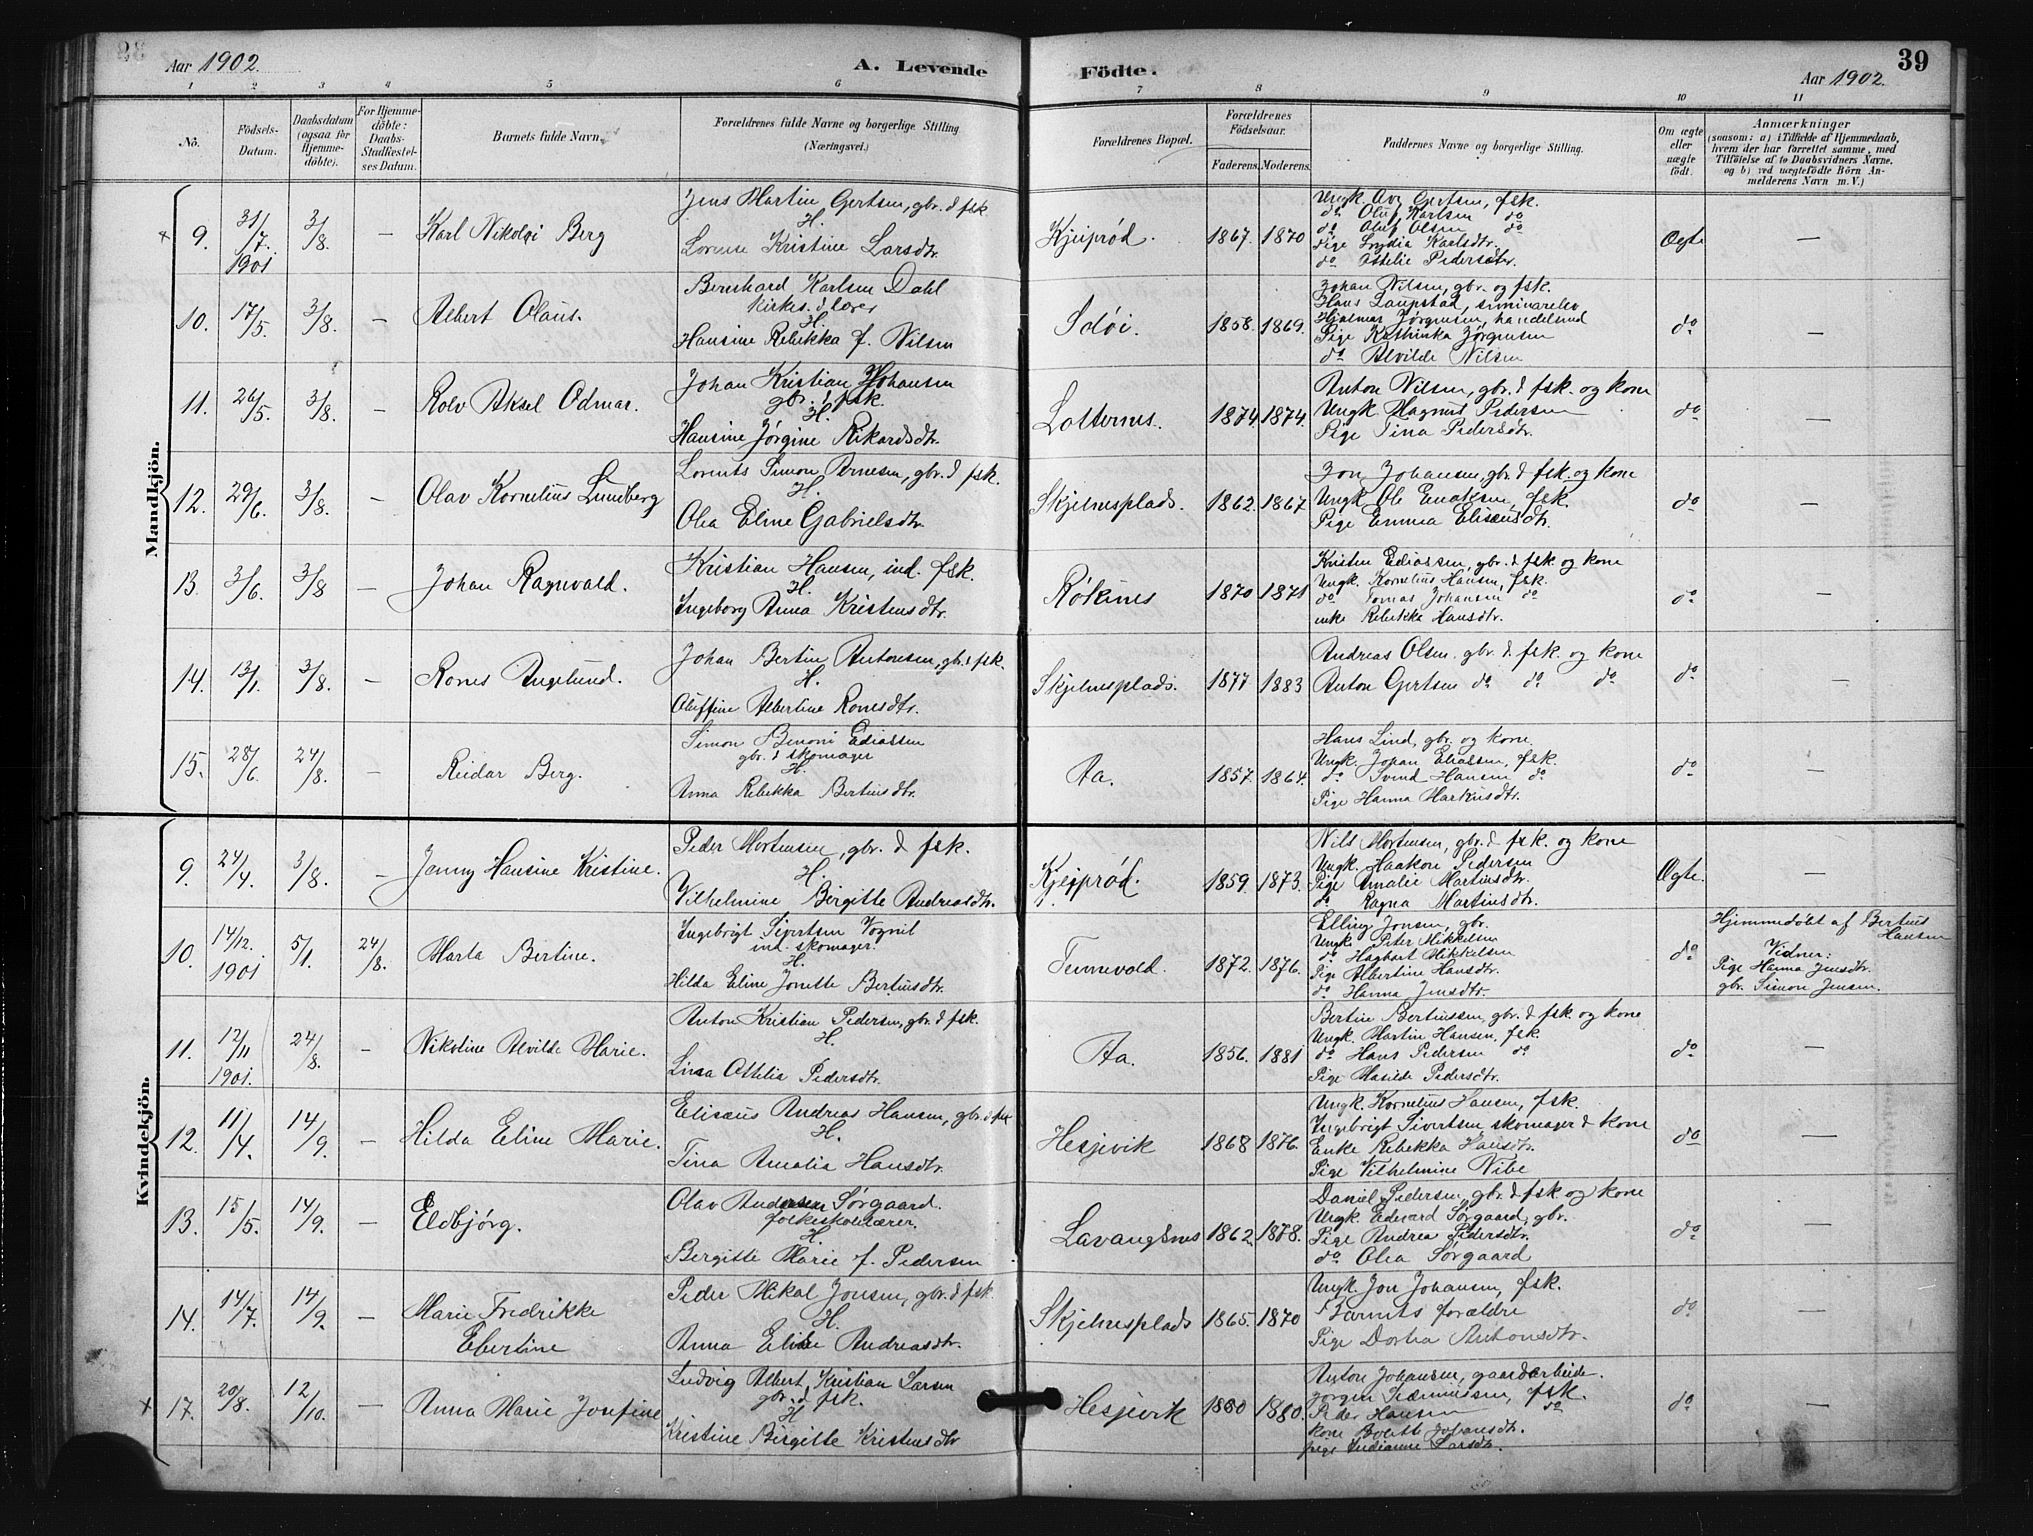 Aar 1902. A. Levende Födte. Aar 1902. 39
1 2 3 4 5 6 7 8 9 10 11
No.
Födsels-
Datum.
Daabsdatum
(ogsaa for
Hjemme-
döbte).
For Hjemme-
döbte:
Daabs-
Stadfæstel-
ses Datum.
Barnets fulde Navn.
Forældrenes fulde Navne og borgerlige Stilling
(Næringsvei.)
Forældrenes Bopæl.
Forældrenes
Födselsaar.
Faderens. Moderens.
Faddernes Navne og borgerlige Stilling.
Om ægte
eller
uægte
födt.
Anmærkninger
(saasom: a) i Tilfælde af Hjemmedaab,
hvem der har forrettet samme, med
Tilföielse af to Daabsvidners Navne,
og b) ved uægtefödte Börn An-
melderens Navn m. V.)
Mandkjön.
× 9. 31/7. 1901 3/8. — Karl Nikolai Berg
Jens Martin Gertsen, gbr. & fsk
H.
Lorense Kristine Larsdtr.
Kjeiprød. 1867. 1870
Ungk. Gertsen, fsk.
do Oluf Karlsen do
do Oluf Olsen do
Pige Lydia Karlsdtr.
do Othelie Pedersdtr.
Ægte —
10. 17/5. 3/8. — Albert Olaus.
Bernhard Karlsen Dahl
kirkes. & lærer
H.
Hansine Rebekka f. Nilsen
1858. 1869.
Johan Nilsen, gbr. og fsk.
Hans Laupstad, seminarelev
Hjalmar Jørgensen, handelsmd
Pige Kathinka Jørgensen
do Alvilde Nilsen
do —
11. 26/5. 3/8. — Rolv Aksel Odmar.
Johan Kristian Johansen
gbr. & fsk.
H.
Hansine Jørgine Rikardsdtr.
1874. 1874.
Anton Nilsen, gbr. & fsk. og kone
Ungk. Magnus Pedersen
Pige Tina Pedersdtr.
do —
12. 29/6. 3/8. — Olav Kornelius Lundberg
Lorents Simon Arnesen, gbr. & fsk.
H.
Olea Eline Gabrielsdtr.
Skjelnesplads. 1862. 1867
Jon Johansen, gbr. & fsk. og kone
Ungk. Ole Enoksen, fsk.
Pige Emma Elisæusdtr.
do —
13. 3/6. 3/8 — Johan Ragnvald.
Kristian Hansen, ind. fsk.
H.
Ingeborg Anna Kristensdtr.
Røkenes 1870 1871
Kristen Ediassen, gbr. & fsk. og kone
Ungk. Kornelius Hansen, fsk.
do Tomas Johansen do
enke Rebekka Hansdtr.
do —
14. 13/1. 3/8. — Rones Angelund.
Johan Bertin Antonsen, gbr. & fsk.
H.
Oluffine Albertine Ronesdtr.
Skjelnesplads. 1877 1883
Andreas Olsen gbr. & fsk. og kone
Anton Gertsen do do do
do —
15. 28/6. 24/8. — Reidar Berg.
Simon Benoni Ediassen
gbr. & skomager
H.
Anna Rebekka Bertinsdtr.
Aa. 1857. 1864.
Hans Lind, gbr. og kone
Ungk. Johan Eliassen, fsk.
do Svend Hansen do
Pige Hanna Markusdtr.
do —
Kvindekjön.
9. 24/4. 3/8. — Jenny Hansine Kristine.
Peder Mortensen, gbr. & fsk.
H.
Vilhelmine Birgitte Andreasdtr.
Kjeiprød. 1859. 1873.
Nils Mortensen, gbr. & fsk. og kone
Ungk. Haakon Pedersen
Pige Amalie Martinsdtr.
do Ragna Martinsdtr.
Ægte. —
10. 14/12. 1901 5/1. 24/8. Marta Bertine.
Ingebrigt Sivertsen Vognil
ind. skomager.
H.
Hilda Eline Jonette Bertinsdtr.
Tennevold. 1872. 1876.
Elling Jonsen, gbr.
Ungk. Peter Mikkelsen
do Hagbart Mikkelsen
Pige Albertine Hansdtr.
do Hanna Jensdtr.
do
Hjemmedöbt af Bertius
Hansen
Vidner:
Pige Hanna Jensdtr.
gbr. Simon Jensen.
11. 12/11 1901. 24/8. — Nikoline Alvilde Marie.
Anton Kristian Pedersen, gbr. & fsk.
H.
Lina Othelia Pedersdtr.
Aa. 1856. 1881
Bertin Bertinssen, gbr. & fsk og kone
Ungk. Martin Hansen, fsk.
do Hans Pedersen do
Pige Masilde Pedersdtr.
do —
12. 11/4. 14/9. — Hilda Eline Marie.
Elisæus Andreas Hansen, gbr. & fsk
H.
Tina Amalia Hansdtr.
Hesjevik 1868 1876.
Ungk. Kornelius Hansen, fsk.
Ingebrigt Sivertsen skomager & kone
Enke Rebekka Hansdtr.
Pige Vilhelmine Vibe
do —
13. 15/5. 14/9. — Eldbjörg.
Olav Andersen Sørgaard.
folkeskolelærer.
H.
Bergitte Marie f. Pedersen
Lavangsnes 1862. 1878.
Daniel Pedersen, gbr. & fsk og kone
Ungk. Edvard Sørgaard, gbr.
Pige Andrea Pedersdtr.
do Olea Sørgaard
do —
14. 14/7. 14/9. — Marie Fredrikke
Ebertine
Peder Mikal Jonsen, gbr. & fsk.
H.
Anna Eline Andreasdtr.
Skjelnesplads 1865. 1870
Ungk. Jon Johansen, fsk.
Barnets forældre
Pige Dortea Antonsdtr.
do —
× 17. 20/8. 12/10. — Anna Marie Josefine
Ludvig Albert Kristian Larsen
gbr. & fsk.
H
Kristine Birgitte Kristensdtr
Hesjevik 1880 1880.
Anton Johansen, gaardarbeide.
Jørgen fsk.
Peder Hansen do
kone Johansdtr.
pige Larsdtr.
do —